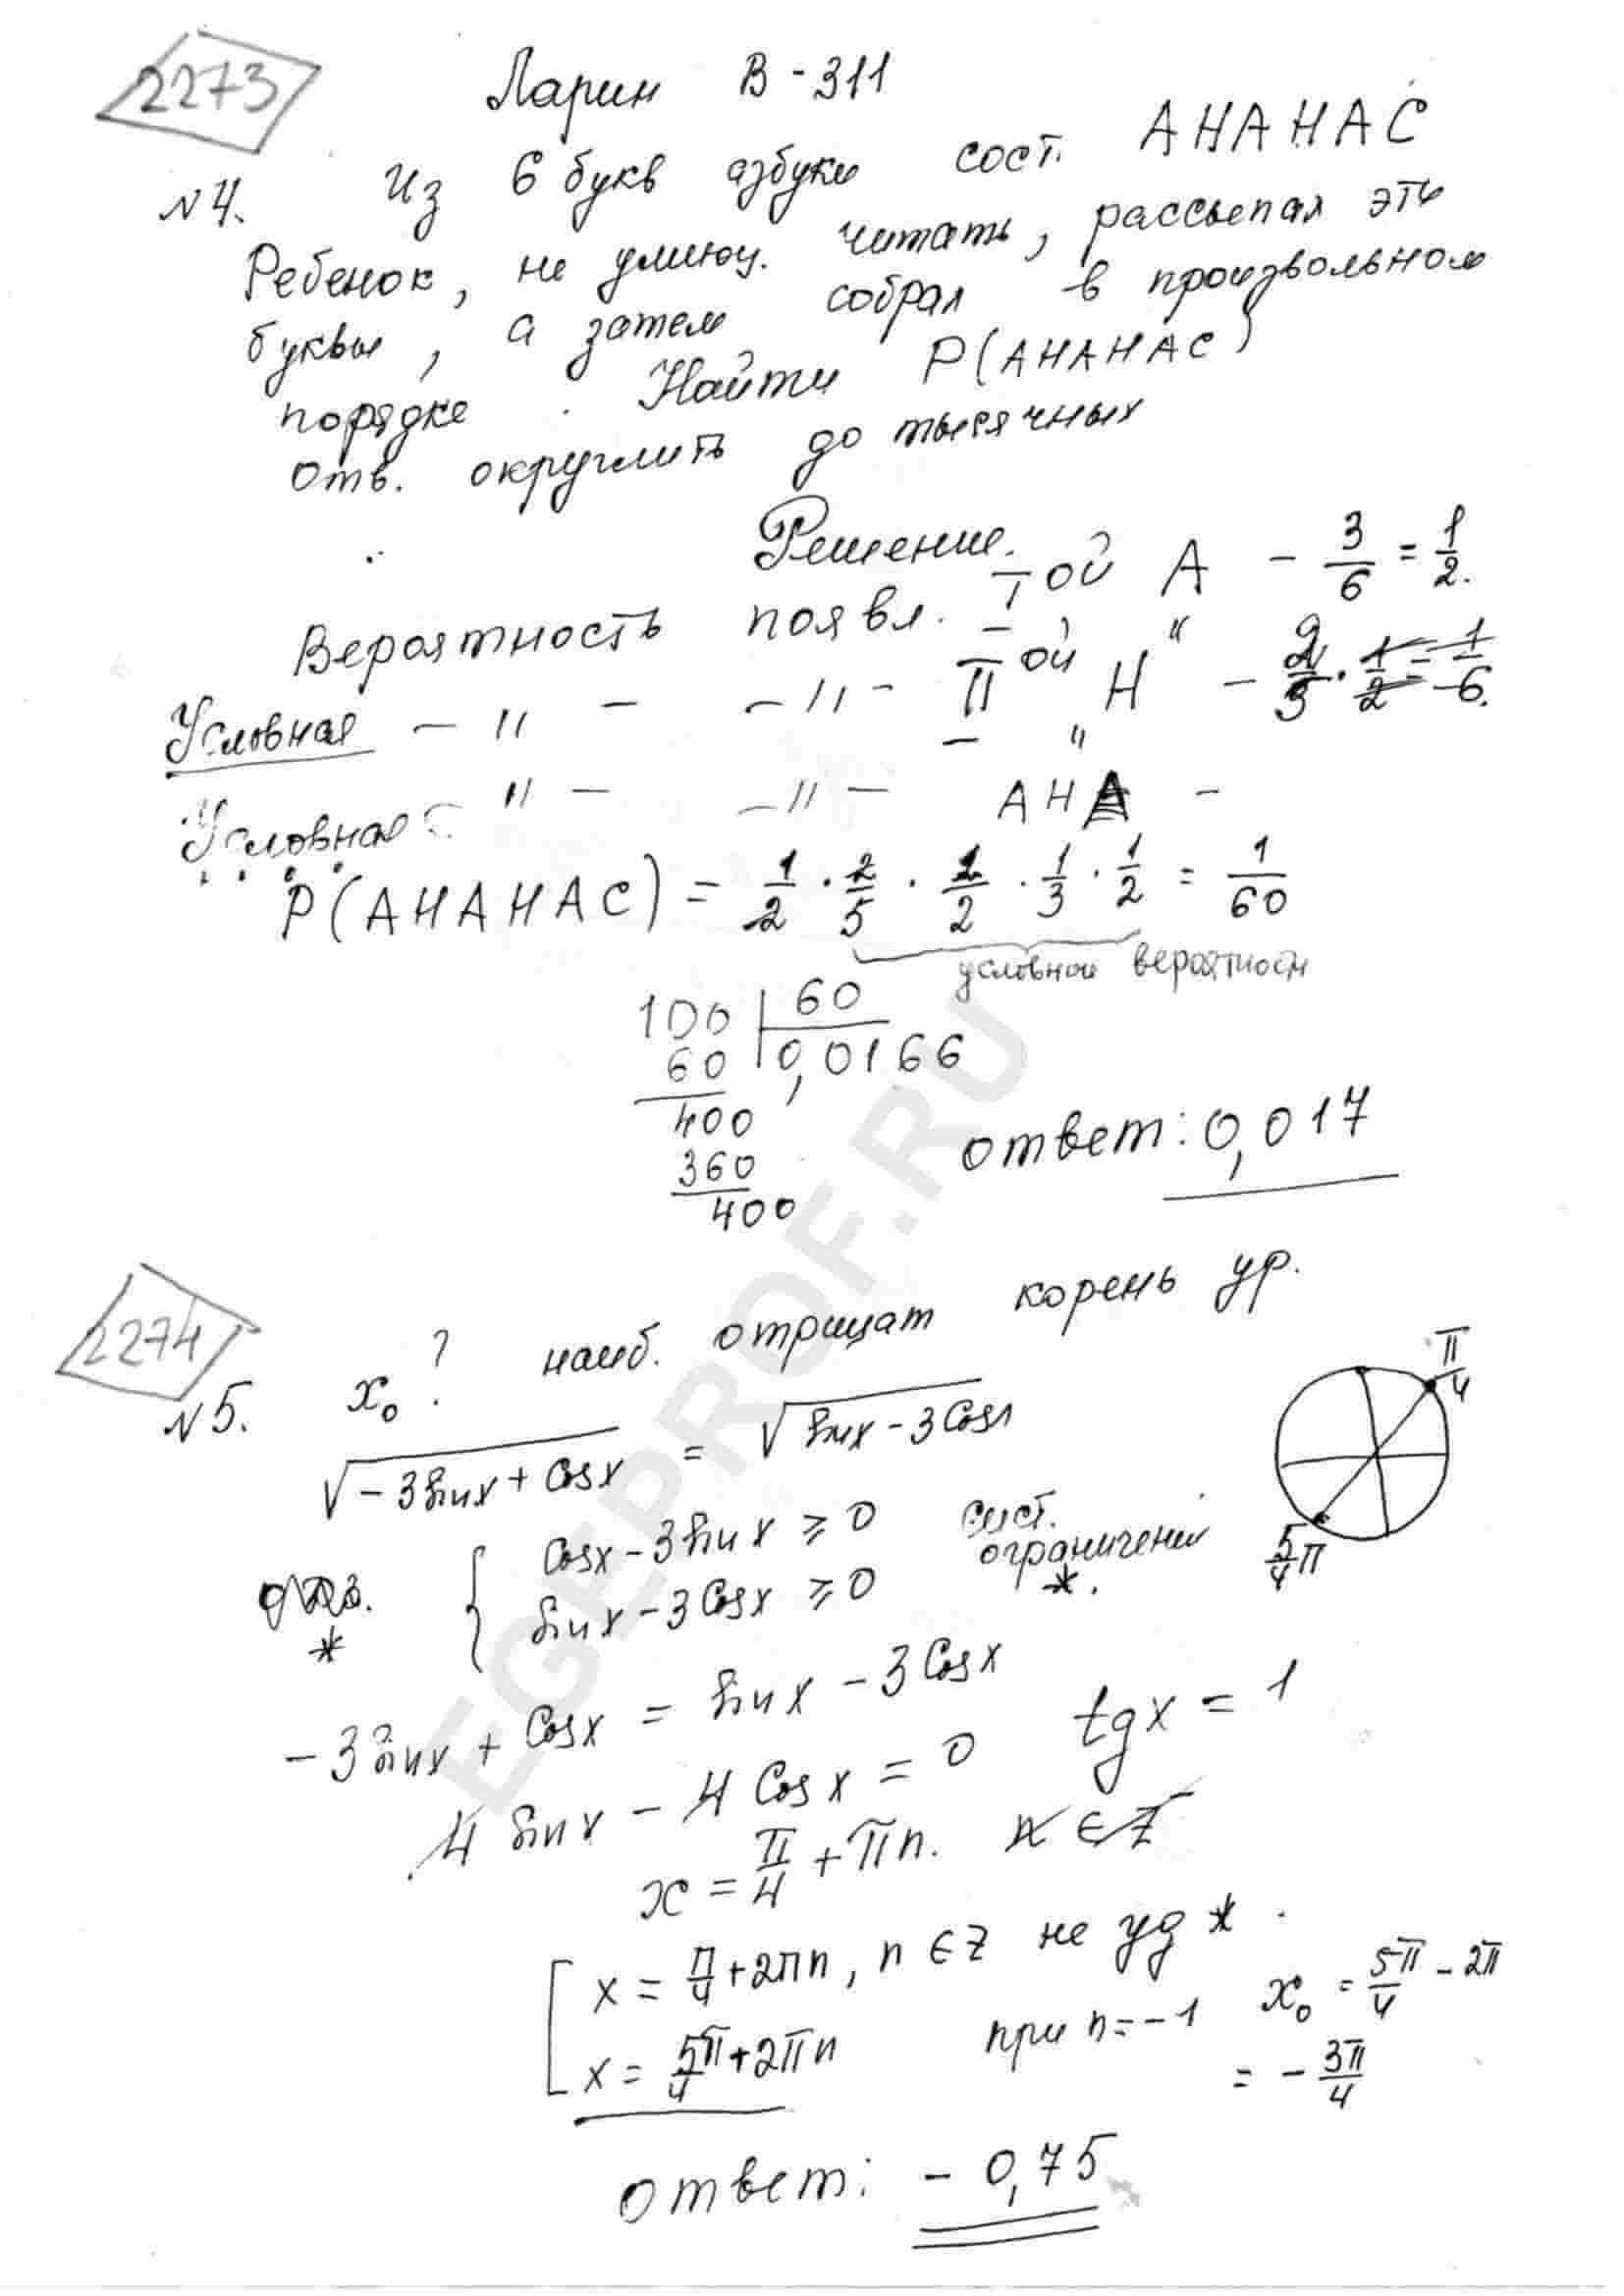 2273
Ларин В-311
№4. Из 6 букв азбуки сост. АНАНАС
Ребенок, не умеющ. читать, рассыпал эти
буквы, а затем собрал в произвольном
порядке. Найти P(АНАНАС)
Отв. округлить до тысячных
Решение.
Вероятность появл. I ой "А" - 3/6 = 1/2.
Условная - " - - " - II ой "Н" - 2/5 · 1/2 = 1/6.
Условная - " - - " - АНА -
P(АНАНАС) = 1/2 · 2/5 · 1/2 · 1/3 · 1/2 = 1/60
условной вероятности
100 | 60
60 | 0,0166
400
360
400
ответ: 0,017
2274
№5. x₀? наиб. отрицат корень ур.
√(-3sinx + Cosx) = √(sinx - 3Cosx)
π/4
5/4 π
ОДЗ. * { Cosx - 3sinx ≥ 0
sinx - 3Cosx ≥ 0
сист. ограничений *.
-3sinx + Cosx = sinx - 3Cosx
4sinx - 4Cosx = 0 tgx = 1
x = π/4 + πn. n ∈ Z
[ x = π/4 + 2πn, n ∈ Z не уд *.
x = 5π/4 + 2πn при n = -1 x₀ = 5π/4 - 2π
= - 3π/4
ответ: - 0,75
EGEPROF.RU